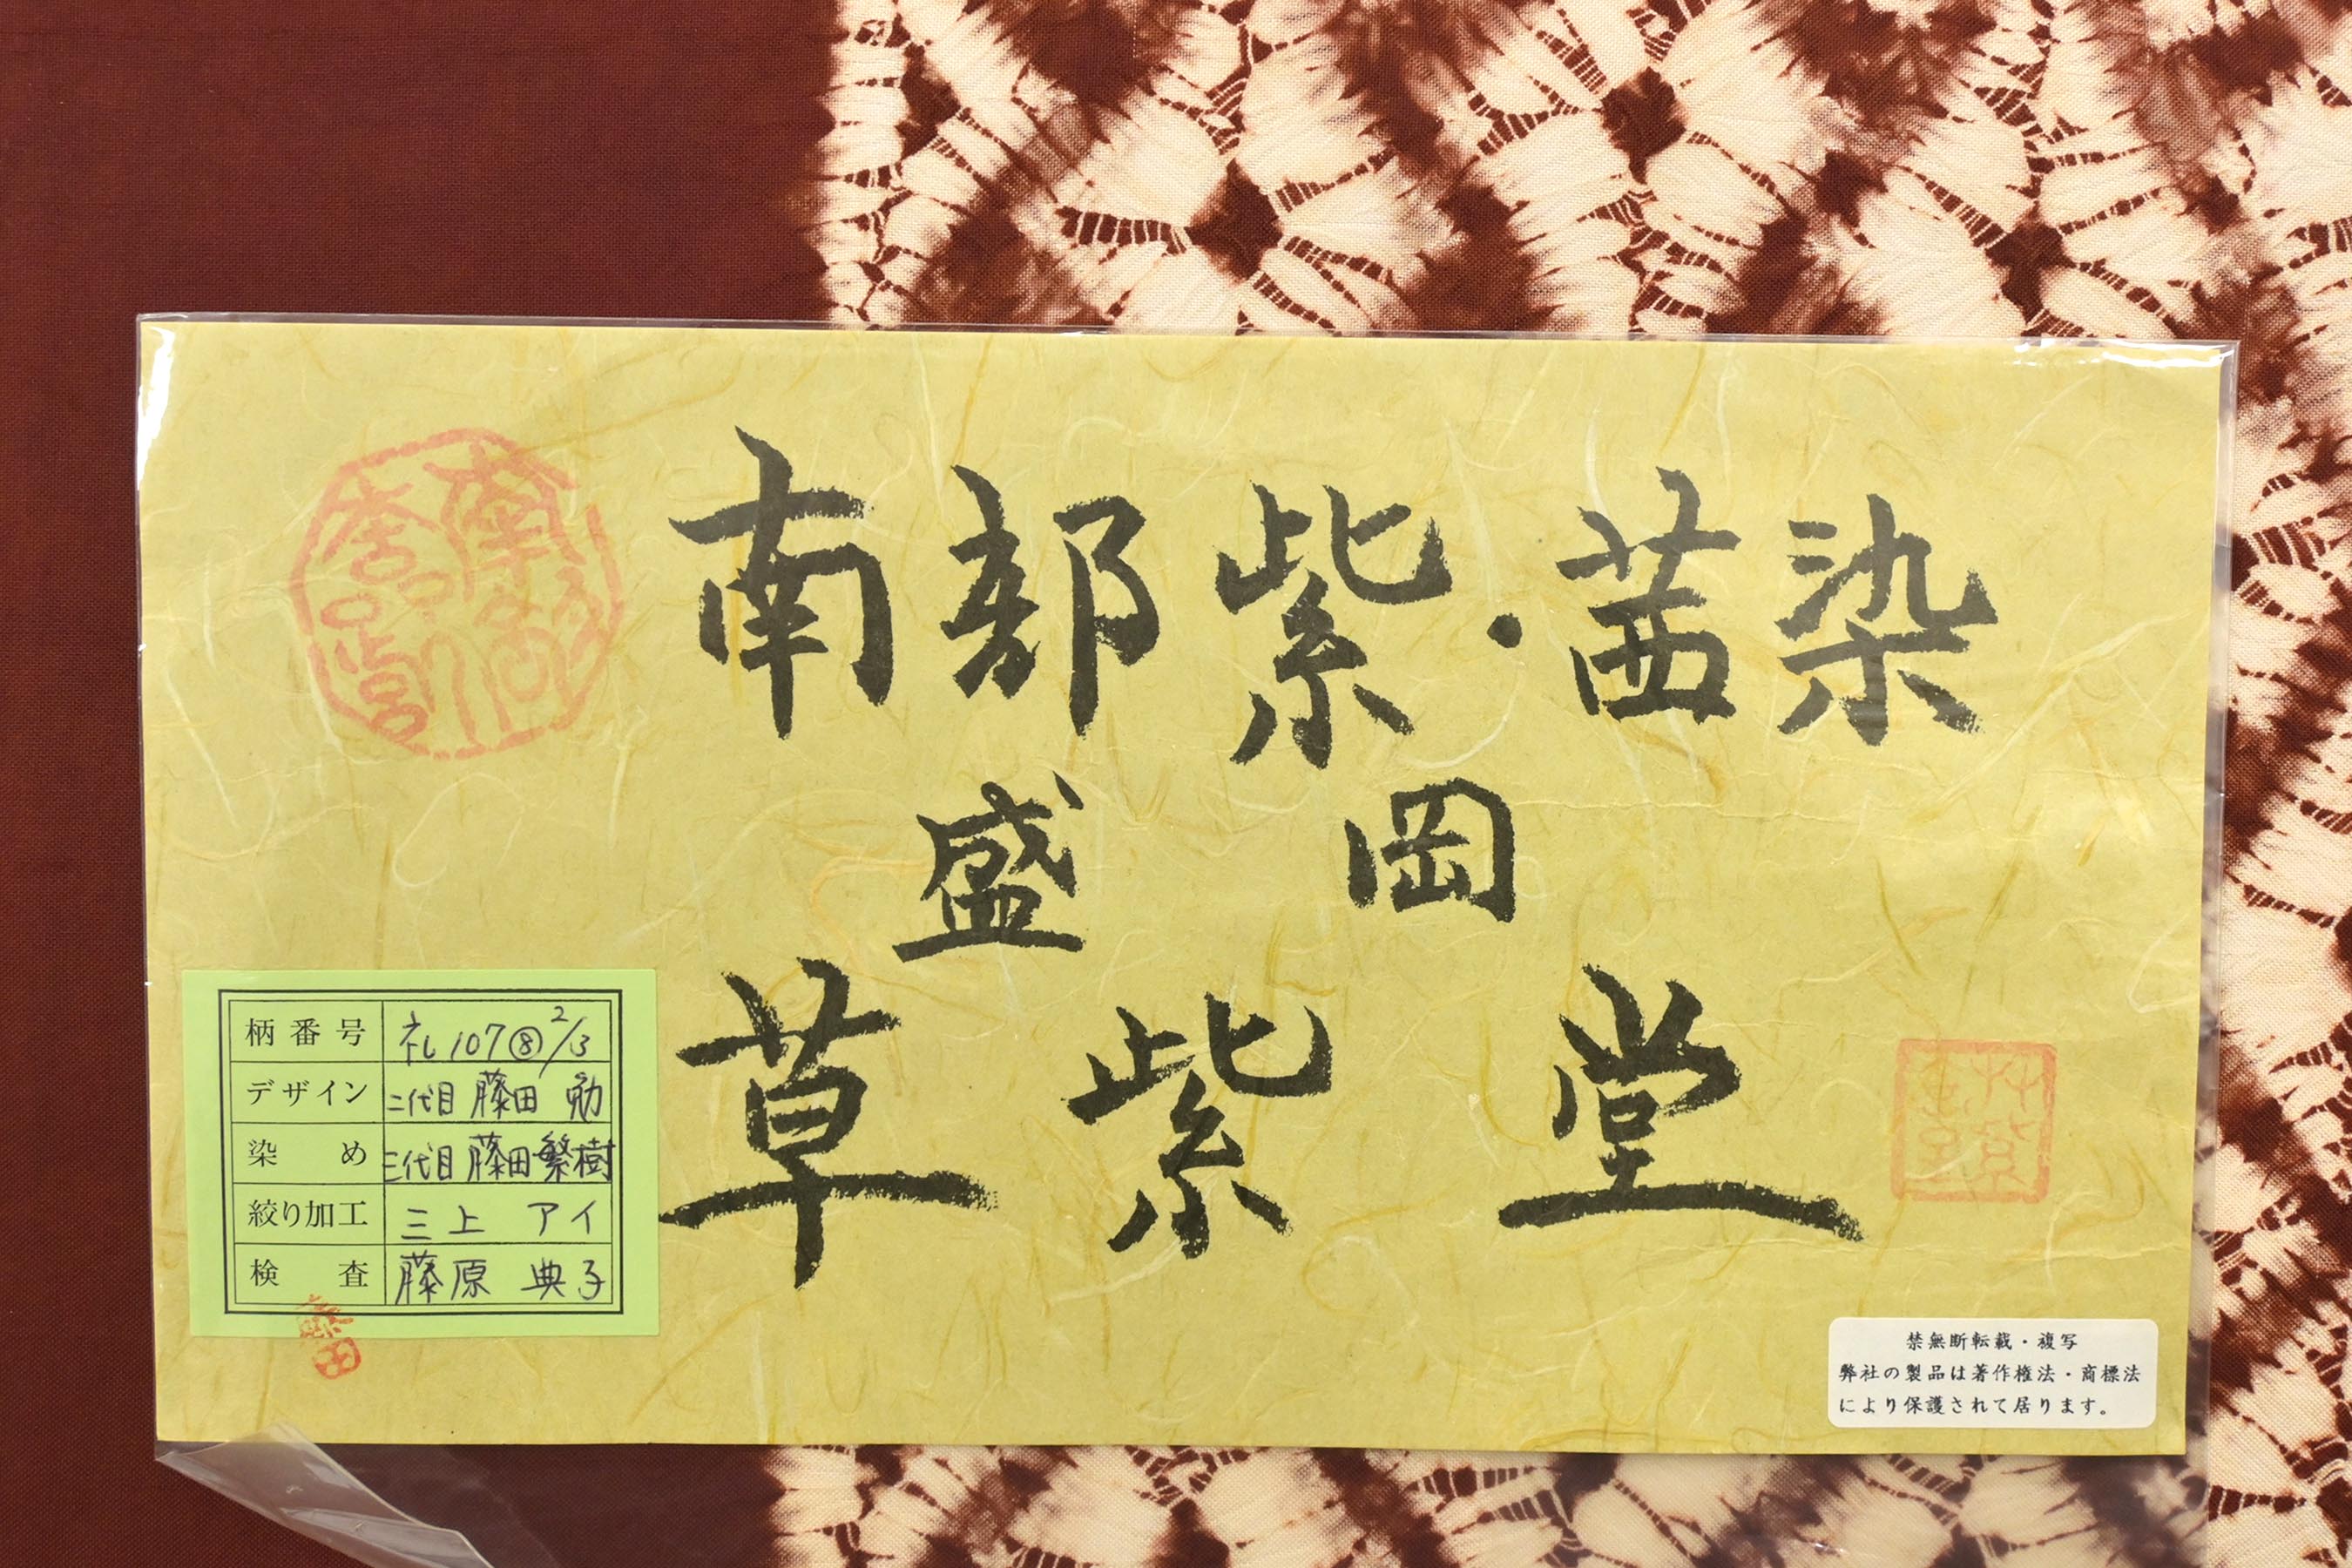 南部紫・茜染
盛岡
草紫堂
柄番号 礼107⑧2/3
デザイン 二代目 藤田 勉
染め 三代目 藤田繁樹
絞り加工 三上 アイ
検査 藤原 典子
藤田
禁無断転載・複写
弊社の製品は著作権法・商標法
により保護されて居ります。